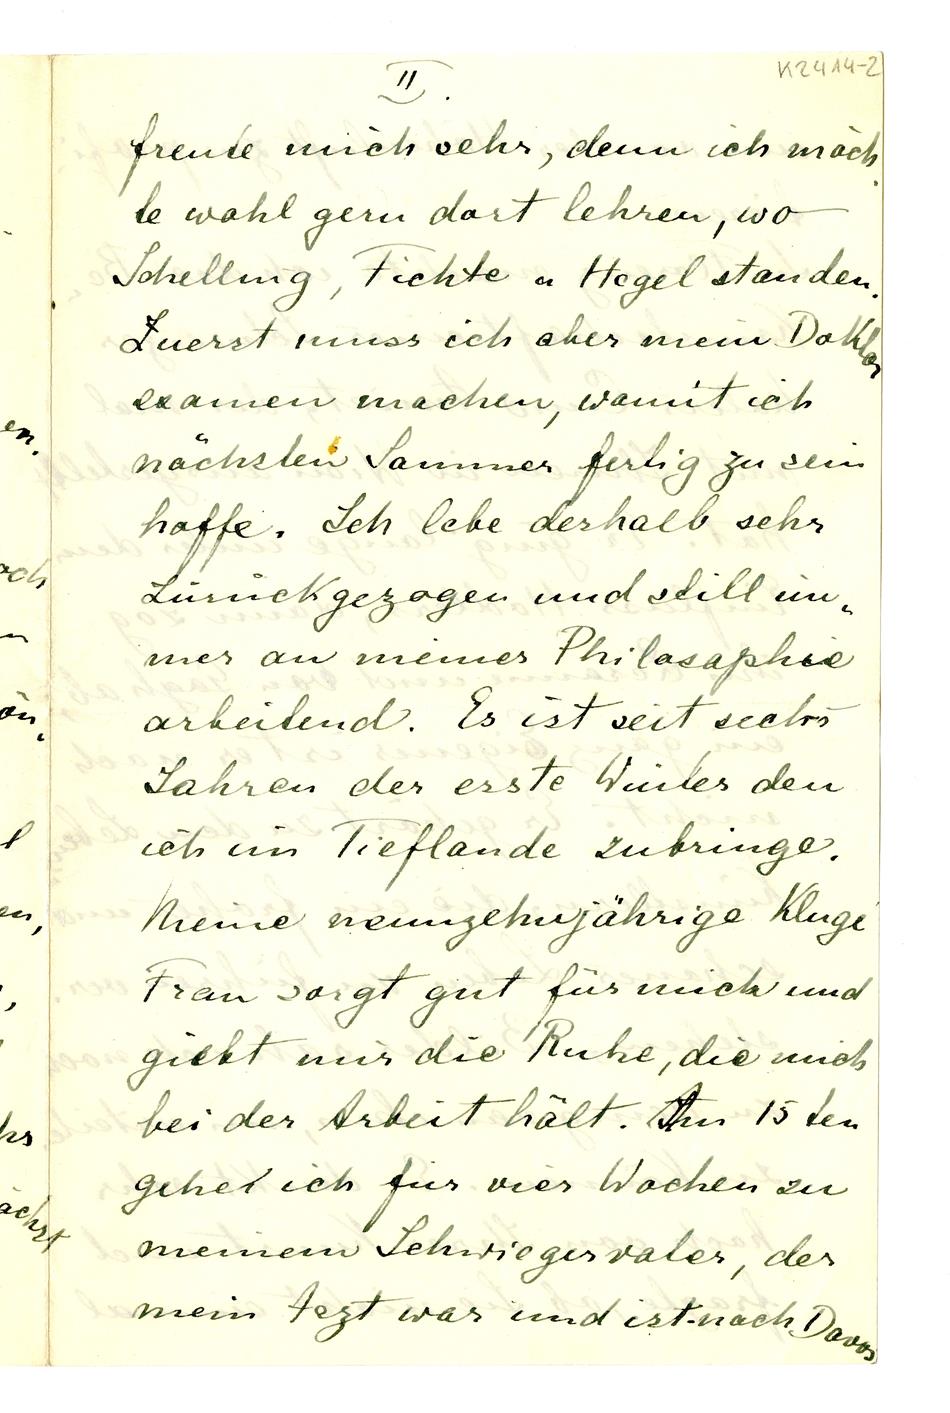 K2414-2
II.
freute mich sehr, denn ich möch
te wohl gern dort lehren, wo
Schelling, Fichte u Hegel standen.
Zuerst muss ich aber mein Doktor
examen machen, womit ich
nächsten Sommer fertig zu sein
hoffe. Ich lebe deshalb sehr
zurückgezogen und still im-
mer an meiner Philosophie
arbeitend. Es ist seit sechs
Jahren der erste Winter den
ich im Tieflande zubringe.
Meine neunzehnjährige kluge
Frau sorgt gut für mich und
giebt mir die Ruhe, die mich
bei der Arbeit hält. Am 15 ten
gehe ich für vier Wochen zu
meinem Schwiegervater, der
mein Arzt war und ist nach Davos